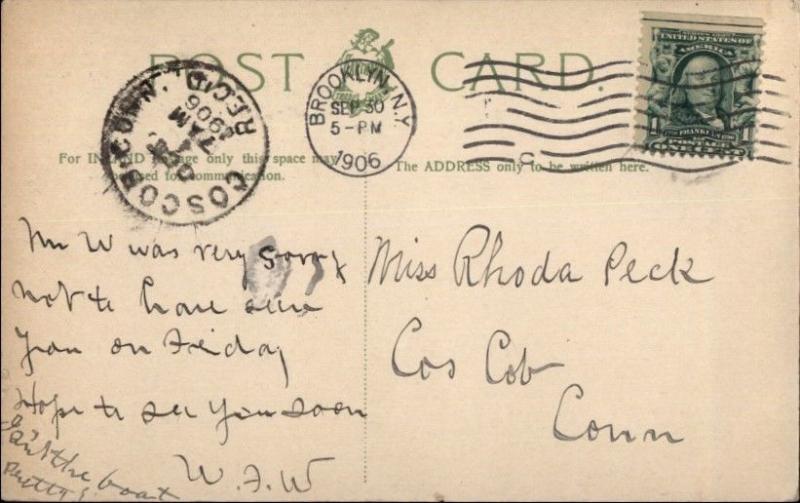 POST CARD.
BROOKLYN, N.Y.
SEP 30
5-PM
1906
COSCOB. CONN.
REC'D.
7 AM
1906
SERIES 1902
UNITED STATES OF
AMERICA
1 FRANKLIN 1
For INLAND Postage only this space may
be used for communication.
The ADDRESS only to be written here.
Mr W was very sorry
not to have seen
you on Friday
Hope to see you soon
W. F. W
Isn't the boat
pretty?
Miss Rhoda Peck
Cos Cob
Conn